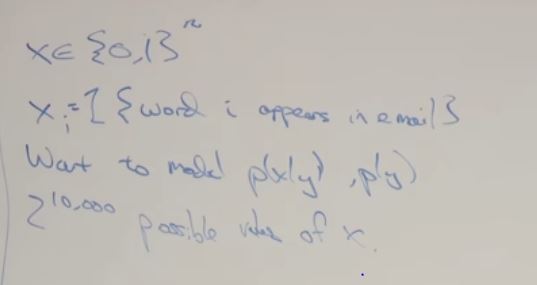 x ∈ {0,1}ⁿ
xᵢ = 1{word i appears in email}
Want to model p(x|y), p(y)
2^10,000 possible values of x.